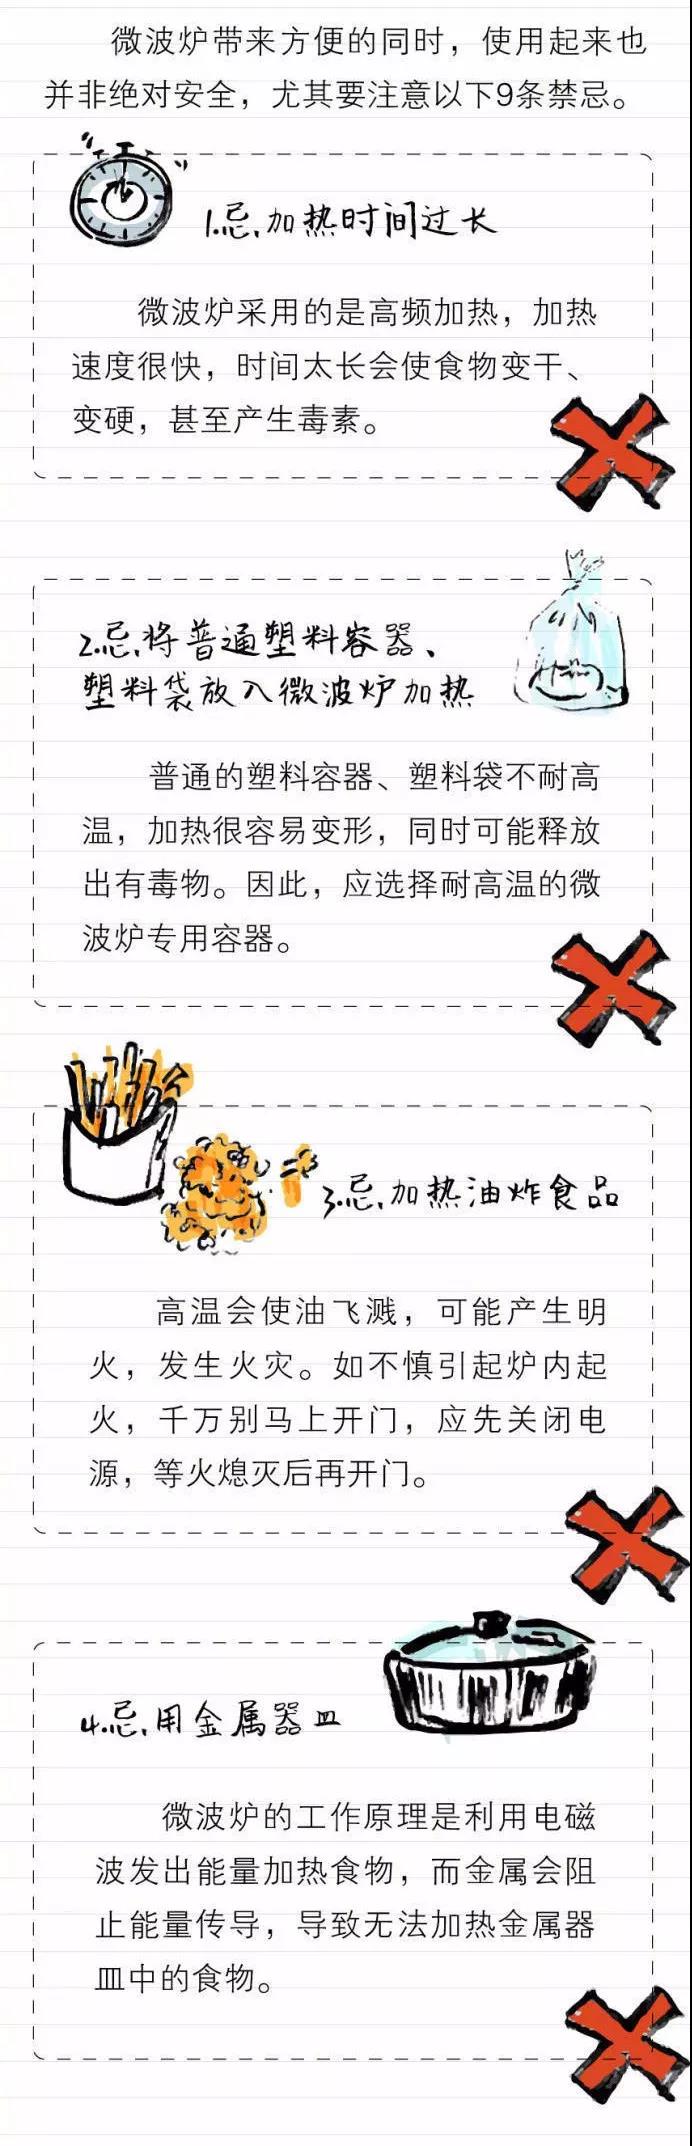 微波炉带来方便的同时，使用起来也
并非绝对安全，尤其要注意以下9条禁忌。
1.忌，加热时间过长
微波炉采用的是高频加热，加热
速度很快，时间太长会使食物变干、
变硬，甚至产生毒素。
2.忌，将普通塑料容器、
塑料袋放入微波炉加热
普通的塑料容器、塑料袋不耐高
温，加热很容易变形，同时可能释放
出有毒物。因此，应选择耐高温的微
波炉专用容器。
3.忌，加热油炸食品
高温会使油飞溅，可能产生明
火，发生火灾。如不慎引起炉内起
火，千万别马上开门，应先关闭电
源，等火熄灭后再开门。
4.忌，用金属器皿
微波炉的工作原理是利用电磁
波发出能量加热食物，而金属会阻
止能量传导，导致无法加热金属器
皿中的食物。